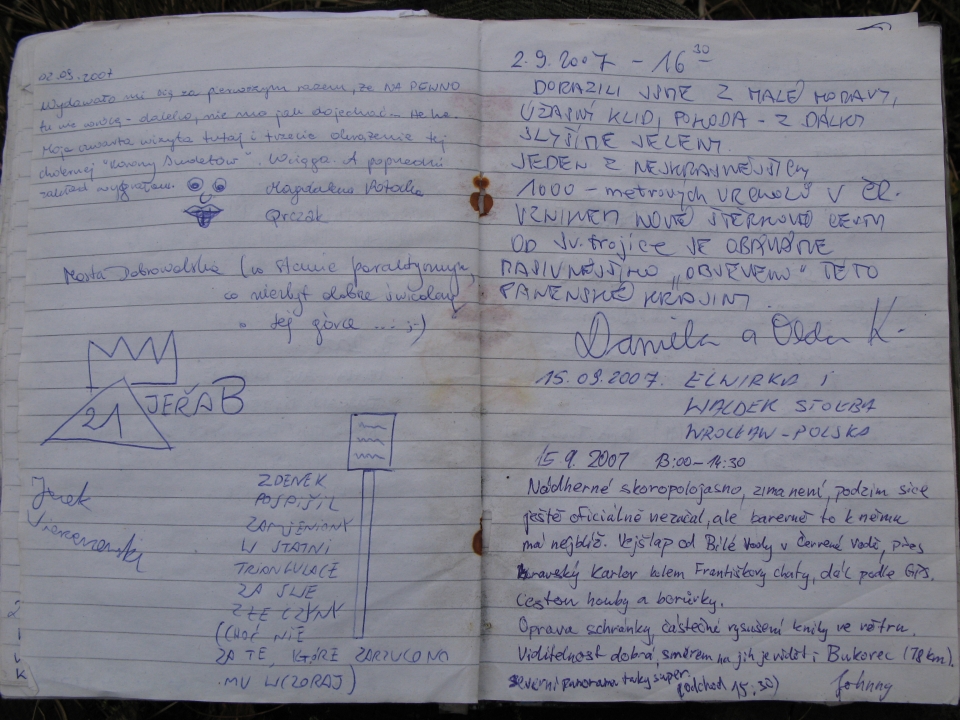 02.09.2007
Wydawało mi się za pierwszym razem, że NA PEWNO
tu nie wrócę - daleko, nie ma jak dojechać... He he.
Moja czwarta wizyta tutaj i trzecie okrążenie tej
cholernej "Korony Sudetów". Wciąga. A poprzedni
zakład wygrałam.
Magdalena Potocka
Qrczak
Marta Dobrowolska (w stanie
co nie
tej górce ... ;-)
21 JEŘAB
Jacek
ZDENEK
POSPÍŠIL
ZAMIENIONY
W STATNI
TRIANGULACE
ZA SWE
ZŁE CZYNY
(CHOĆ NIE
ZA TE, KTÓRE ZARZUCONO
MU WCZORAJ)
2.9.2007 - 16 30
DORAZILI JSME Z MALÉ MORAVY,
ÚŽASNÝ KLID, POHODA - Z DÁLKY
SLYŠÍME JELENY.
JEDEN Z NEJKRÁSNĚJŠÍCH
1000 - metrových VRCHOLŮ V ČR.
VZNIKEM NOVÉ ŠTĚRKOVÉ CESTY
OD Sv. trojice SE OBÁVÁME
MASIVNĚJŠÍHO „OBJEVENÍ" TÉTO
PANENSKÉ KRAJINY.
Daniela a Olda K.
15.09.2007. ELWIRKA i
WALDEK STOLBA
WROCŁAW - POLSKA
15.9.2007 13:00-14:30
Nádherné skoropolojasno, zima není, podzim sice
ještě oficiálně nezačal, ale barevně to k němu
má nejblíž. Vejšlap od Bílé Vody v Červené Vodě, přes
Moravský Karlov kolem Františkovy chaty, dál podle GPS.
Cestou houby a borůvky.
Oprava schránky, částečné vysušení knihy ve větru.
Viditelnost dobrá, směrem na jih je vidět i Bukovec (78km).
severní panorama taky super.
(odchod 15,30) Johnny